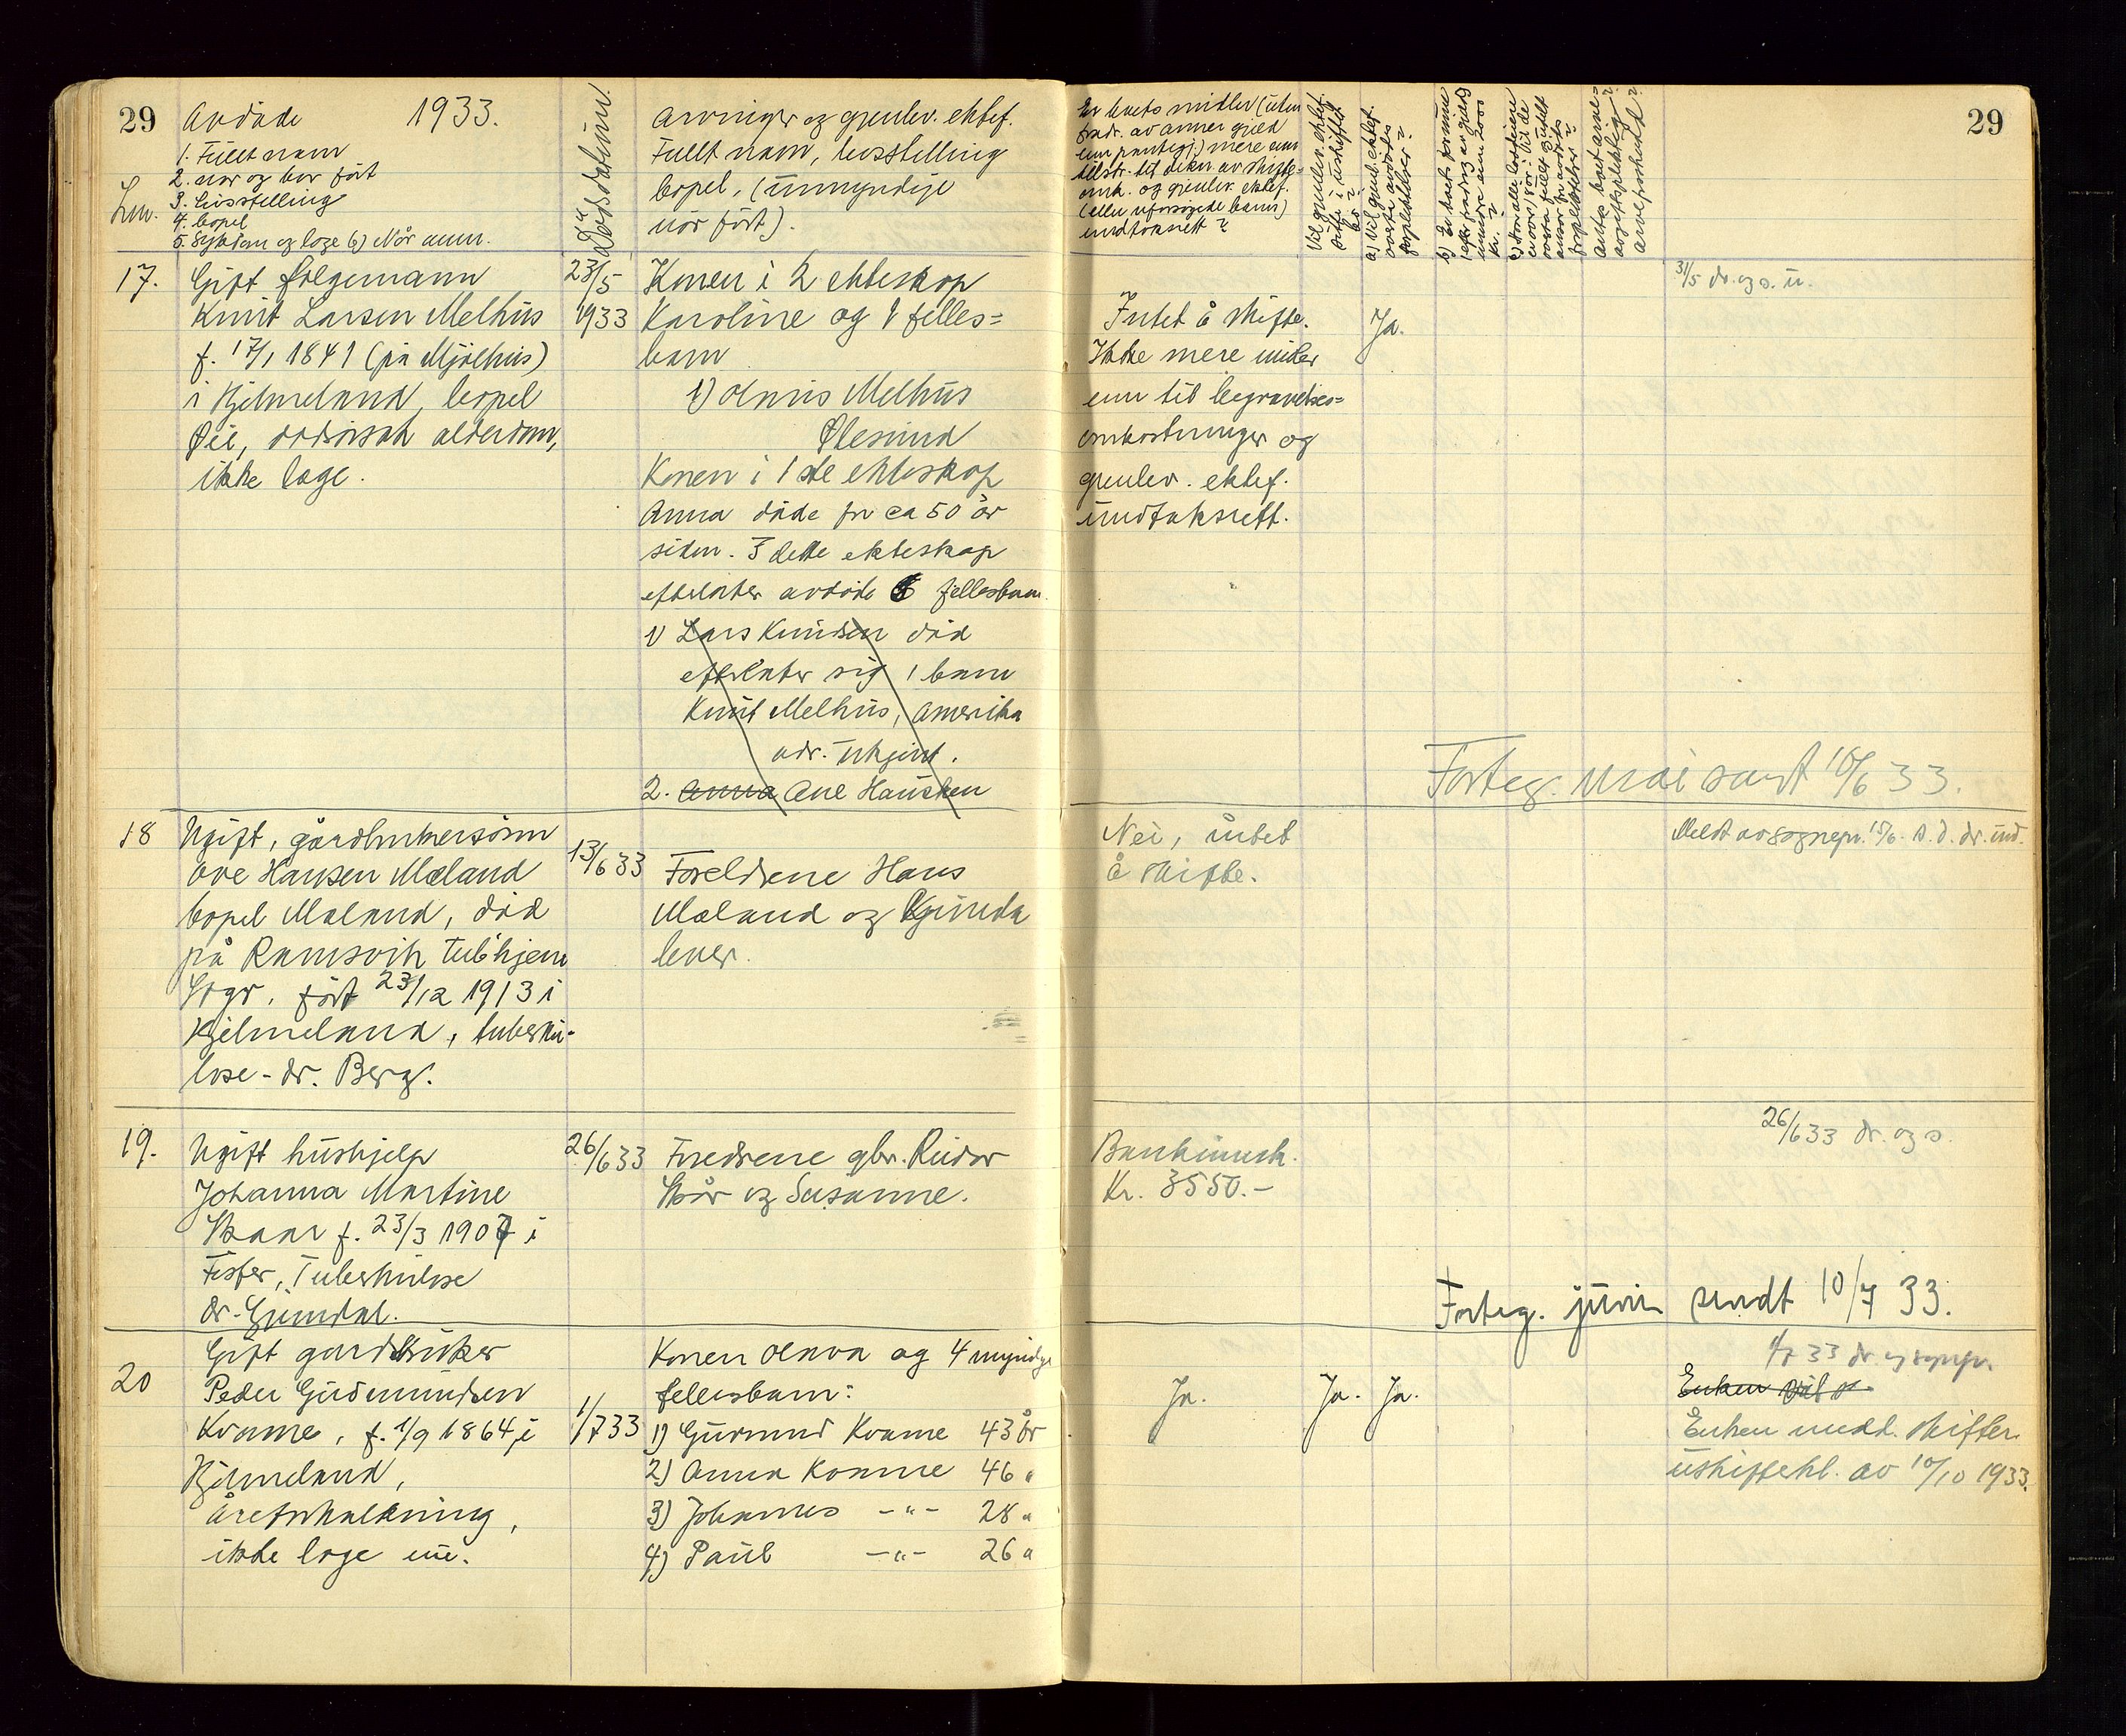 29
Avdöde 1933.
1. Fullt navn
2. når og hvor født
3. livsstilling
4. bopel
5. Sykdom og læge 6) Når anm.
Lnr.
Dödsdatum.
Arvinger og gjenlev. ektef.
Fullt navn, livsstilling
bopel, (umyndige
når født).
17.
Gift følgemann
Knut Larsen Melhus
f. 17/1 1841 (på Mjølhus)
i Hjelmeland, bopel
Øie, dødsårsak alderdom,
ikke læge.
23/5
1933
Konen i 2 ekteskap
Karoline og 1 felles=
barn
1) Olaus Melhus
Ålesund
Konen i 1ste ekteskap
Anna døde for ca 50 år
siden. I dette ekteskap
efterlater avdøde fellesbarn
1) Lars Knudsen død
efterlater sig 1 barn
Knut Melhus, Amerika
adr. ukjent.
2. Anna Ane Hausken
18
Ugift, gårdbrukersønn
Ove Hansen Mæland
bopel Mæland, død
på Ramsvik tub.hjem
Sogn, født 23/12 1913 i
Hjelmeland, tuberku-
lose - dr. Berg.
13/6 33
Foreldrene Hans
Mæland og Gunda
lever.
19.
Ugift hushjelp
Johanna Martine
Skaar f. 23/3 1907 i
Fister, Tuberkulose
dr. Grimdal.
26/6 33
Foredrene gbr. Reidar
Skår og Susanne.
20
Gift gardbruker
Peder Gudmundsen
Kvame, f. 1/9 1864 i
Hjelmeland,
Åreforkalkning,
ikke læge
1/7 33
Konen Olava og 4 myndige
fellesbarn:
1) Gudmund Kvame 43 år
2) Anna Kvame 46 "
3) Johannes -"- 28 "
4) Paul -"- 26 "
29
Er boets midler (uten
fradr. av annen gjeld
enn pantegj.) mere enn
tilstr. til dekn. av skifte-
omk. og gjenlev. ektef.
(eller uforsørgede barns)
undtaksrett?
Vil gjenlev. ektef.
sitte i uskiftet
bo?
a) Vil gjenl. ektef.
overta avdødes
forpliktelser?
31/5 dr. og s. u.
Intet å skifte.
Ja.
Ikke mere midler
enn til begravelses=
omkostninger og
gjenlev. ektef.
undtaksrett.
Forteg. mai sendt 10/6 33.
Nei, intet
å skifte.
Meldt av sognepr. 15/6. s. d. dr. und.
26/6 33 dr. og s.
Bankinnsk.
Kr. 3550.-
Forteg. juni sendt 10/7 33.
1/7 33 dr. og sognepr.
Ja. Ja. Ja.
Enken
Enken medd. skifter
uskiftebl. av 10/10 1933.